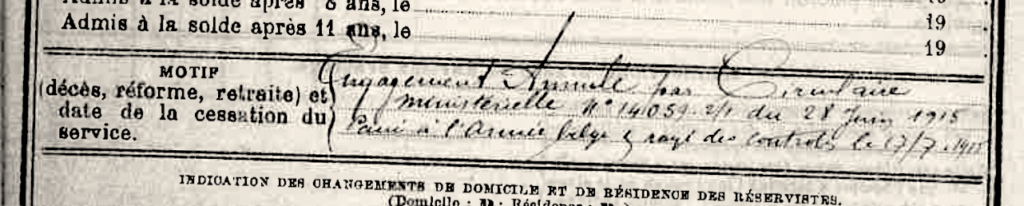 Admis à la solde après 8 ans, le 19
Admis à la solde après 11 ans, le 19
MOTIF
(décès, réforme, retraite) et
date de la cessation du
service.
Engagement Annulé par Circulaire
ministérielle N° 14059 2/1 du 28 Juin 1915
Passé à l'Armée belge & rayé des controles le 17/7.1915
INDICATION DES CHANGEMENTS DE DOMICILE ET DE RÉSIDENCE DES RÉSERVISTES.
(Domicile : D ; Résidence : R.)